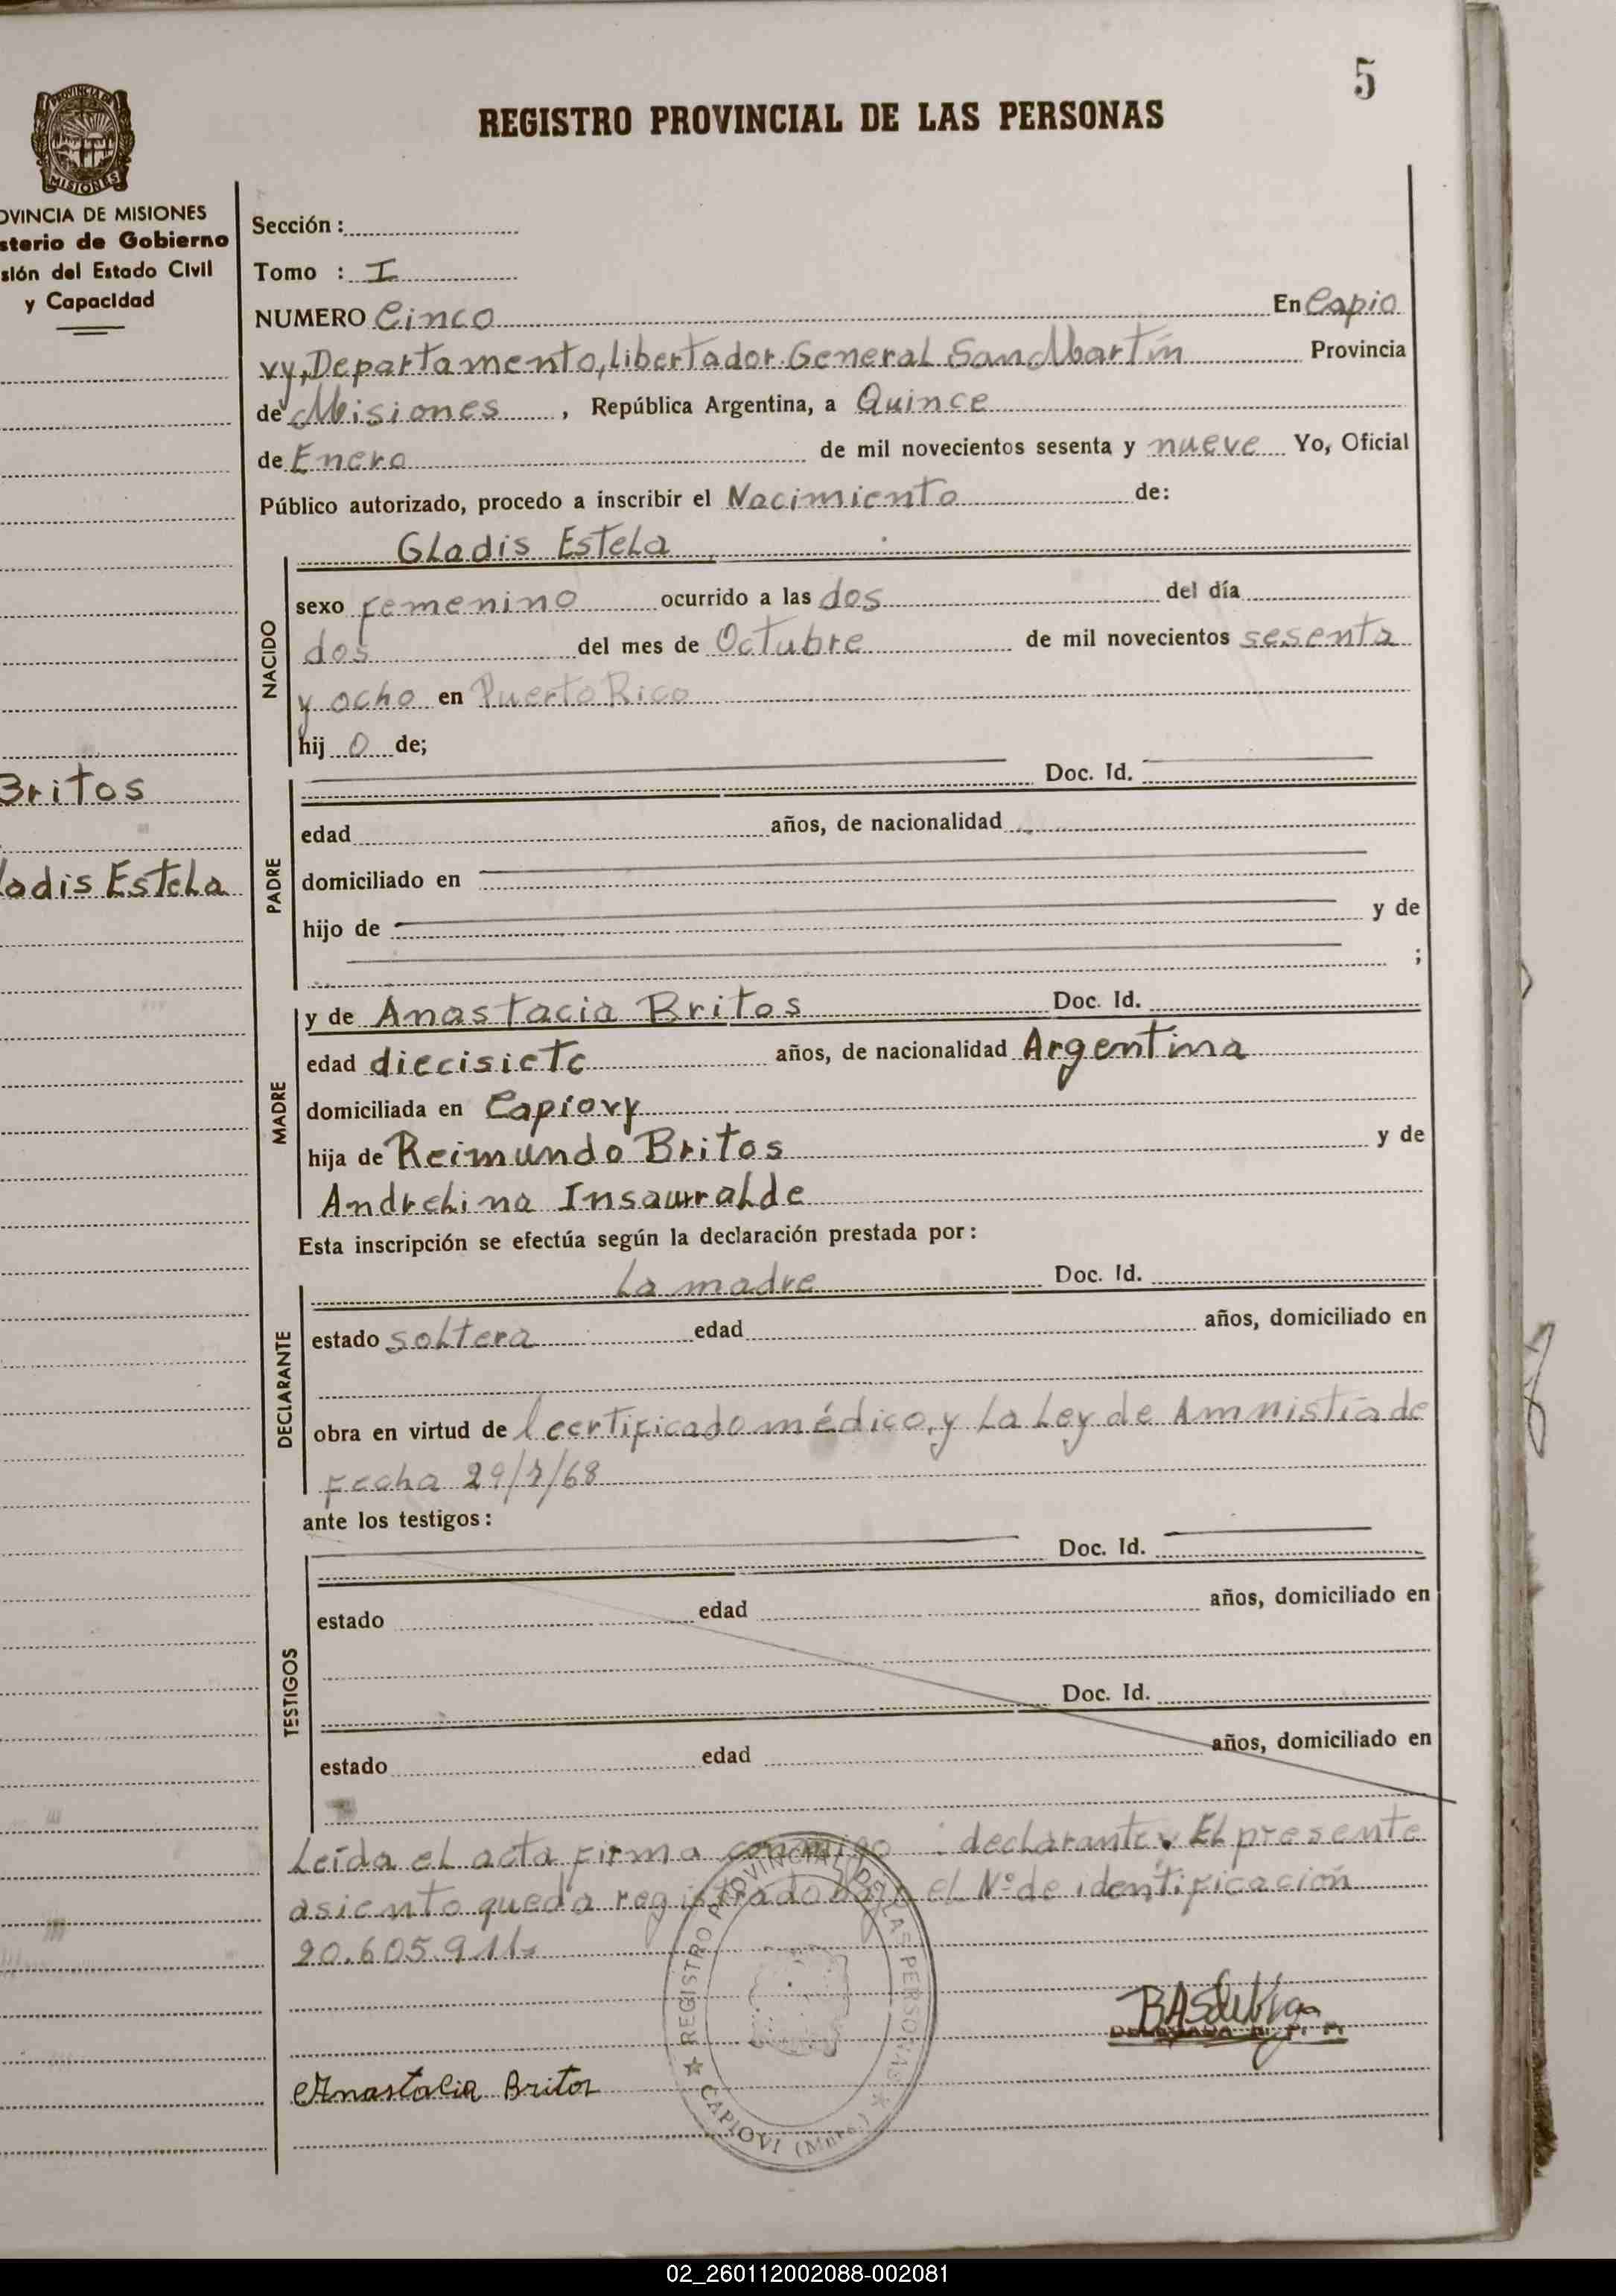 5
REGISTRO PROVINCIAL DE LAS PERSONAS
PROVINCIA DE
MISIONES
OVINCIA DE MISIONES
sterio de Gobierno
sión del Estado Civil
y Capacidad
Britos
ladis Estela
Sección :
Tomo : I
NUMERO Cinco En Capio
vy, Departamento, Libertador General San Martín Provincia
de Misiones , República Argentina, a Quince
de Enero de mil novecientos sesenta y nueve Yo, Oficial
Público autorizado, procedo a inscribir el Nacimiento de:
Gladis Estela
NACIDO
sexo femenino ocurrido a las dos del día
dos del mes de Octubre de mil novecientos sesenta
y ocho en Puerto Rico
hij o de;
PADRE
Doc. Id.
edad años, de nacionalidad
domiciliado en
hijo de y de
;
MADRE
y de Anastacia Britos Doc. Id.
edad diecisiete años, de nacionalidad Argentina
domiciliada en Capiovy
hija de Reimundo Britos y de
Andrelina Insaurralde
Esta inscripción se efectúa según la declaración prestada por:
DECLARANTE
La madre Doc. Id.
estado soltera edad años, domiciliado en
obra en virtud de l certificado médico, y La Ley de Amnistía de
fecha 29/7/68
ante los testigos:
TESTIGOS
Doc. Id.
estado edad años, domiciliado en
Doc. Id.
estado edad años, domiciliado en
Leída el acta firma conmigo : declarante. El presente
asiento queda registrado bajo el Nº de identificación
20.605.911
REGISTRO PROVINCIAL DE LAS PERSONAS
CAPIOVI (Mnes.)
DELEGADA R. P. P.
Anastacia Britos
02_260112002088-002081